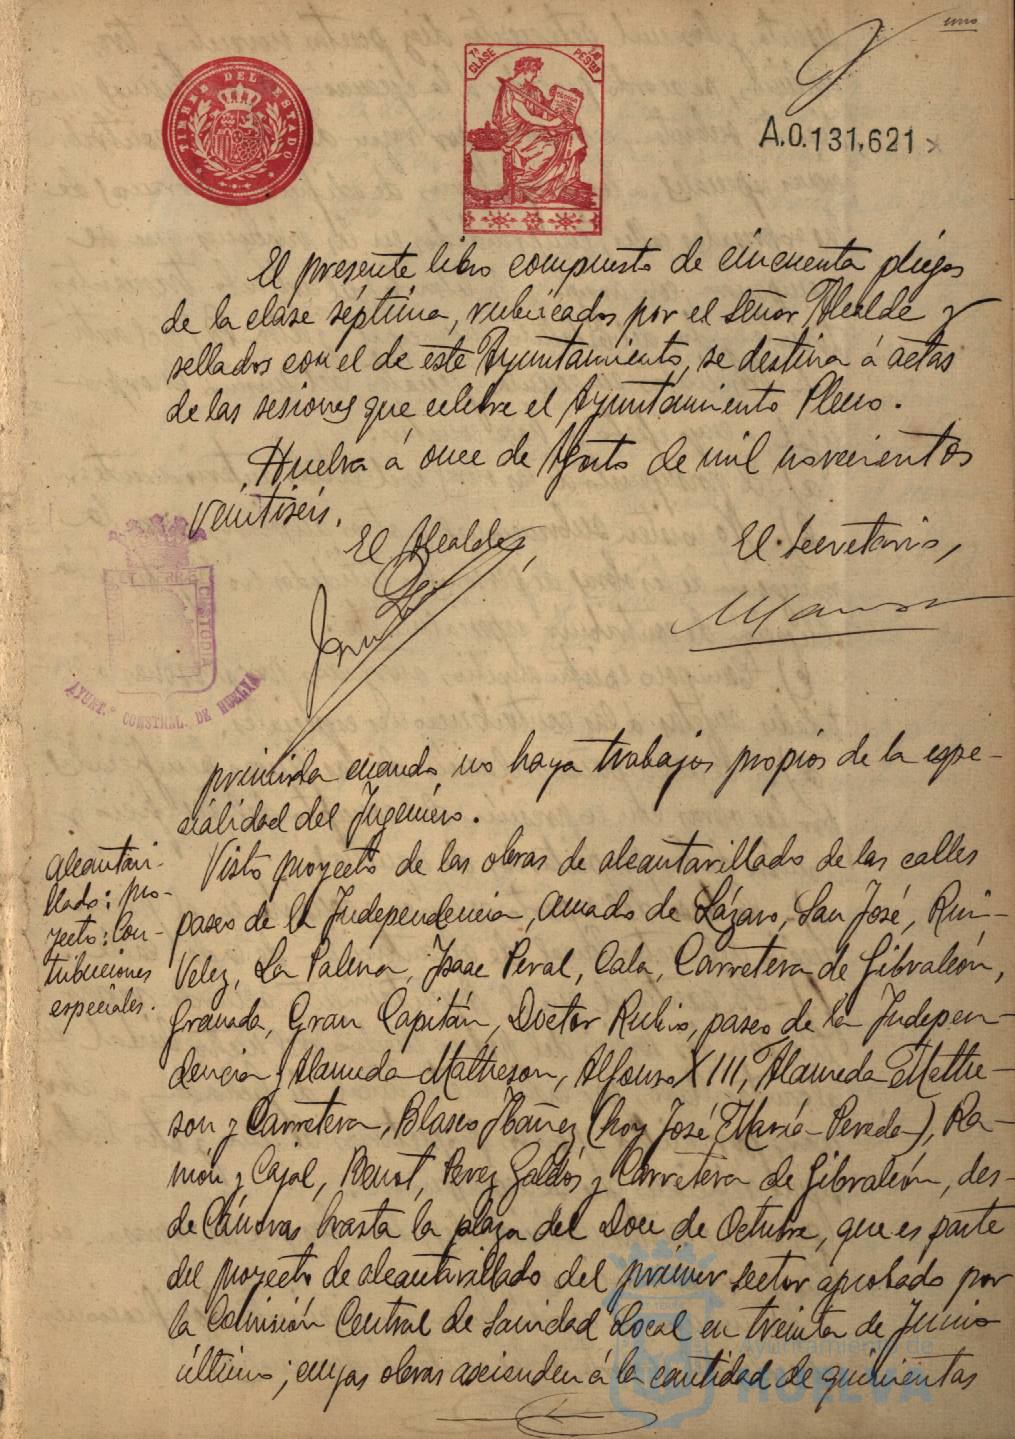 uno
TIMBRE DEL ESTADO
7ª CLASE
PESETAS
A.0.131,621
El presente libro compuesto de cincuenta pliegos
de la clase séptima, rubricados por el Señor Alcalde y
sellados con el de este Ayuntamiento, se destina á actas
de las sesiones que celebre el Ayuntamiento Pleno.
Huelva á once de Agosto de mil novecientos
veintiseis.
El Alcalde,
El Secretario,
CUSTODIA
AYUNT.º CONSTNAL. DE HUELVA
primida cuando no haya trabajos propios de la espe-
cialidad del Ingeniero.
Alcantari-
llado: pro-
yecto: Con-
tribuciones
especiales.
Visto proyecto de las obras de alcantarillado de las calles
paseo de la Independencia, Amado de Lázaro, San José, Rui-
Velez, La Palma, Isaac Peral, Cala, Carretera de Gibraleón,
Granada, Gran Capitán, Doctor Rubio, paseo de la Indepen-
dencia y Alameda Matheson, Alfonso XIII, Alameda Mathe-
son y Carretera, Blasco Ibañez (hoy José María Pereda), Ra-
món y Cajal, Benot, Perez Galdós y Carretera de Gibraleón, des-
de Cánovas hasta la plaza del Doce de Octubre, que es parte
del proyecto de alcantarillado del primer sector aprobado por
la Comisión Central de Sanidad Local en treinta de Junio
último; cuyas obras ascienden á la cantidad de quinientas
Ayuntamiento de
HUELVA